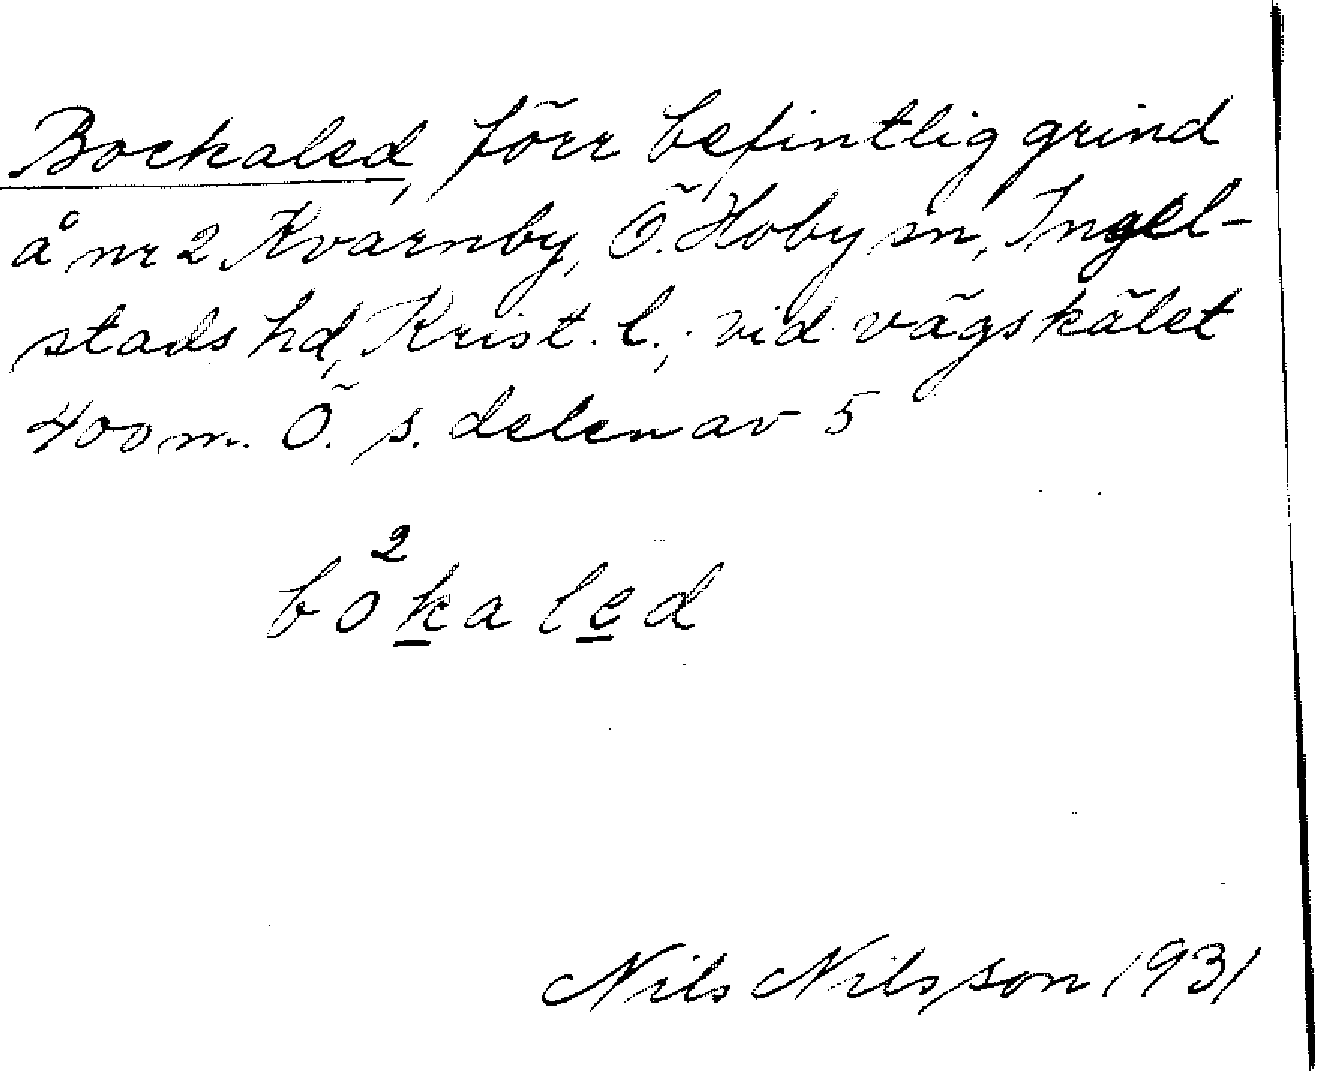 Bockaled, förr befintlig grind
å nr 2 Kvarnby, Ö. Hoby sn, Ingel-
stads hd, Krist. l.; vid vägskälet
400 m. Ö. s. delen av 5
bo²kaled
Nils Nilsson 1931